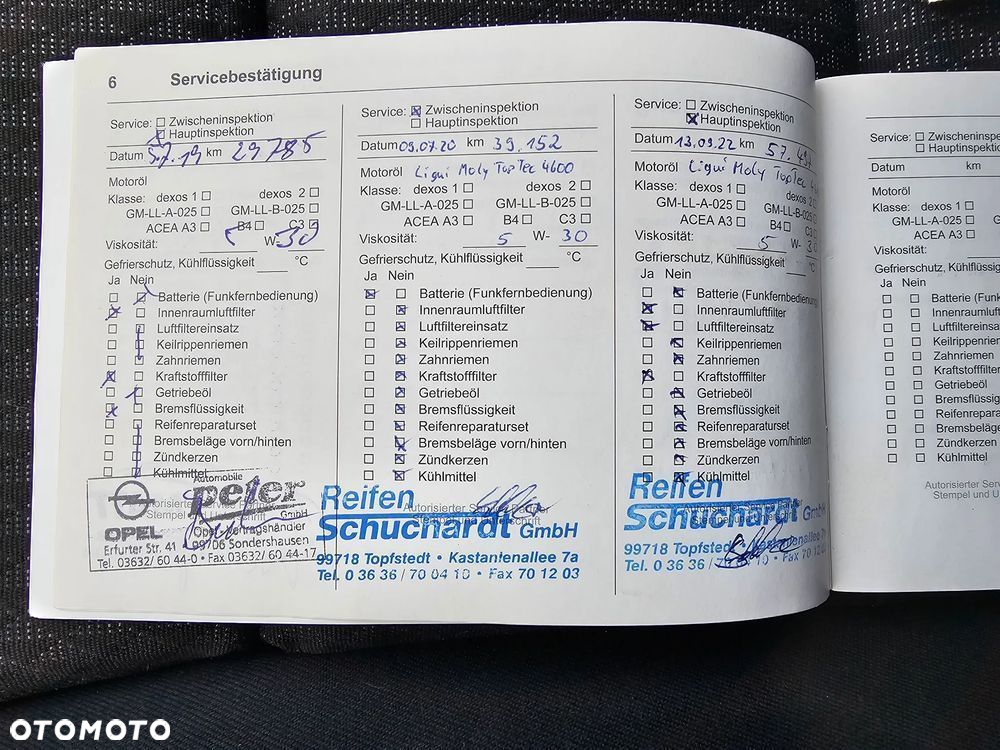 6 Servicebestätigung
Service: Zwischeninspektion
Hauptinspektion
Datum 5.7.19 km 29785
Motoröl
Klasse: dexos 1 dexos 2
GM-LL-A-025 GM-LL-B-025
ACEA A3 B4 C3
Viskosität: 5 W- 30
Gefrierschutz, Kühlflüssigkeit °C
Ja Nein
Batterie (Funkfernbedienung)
Innenraumluftfilter
Luftfiltereinsatz
Keilrippenriemen
Zahnriemen
Kraftstofffilter
Getriebeöl
Bremsflüssigkeit
Reifenreparaturset
Bremsbeläge vorn/hinten
Zündkerzen
Kühlmittel
Automobile
peter
GmbH
OPEL
Opel Vertragshändler
Erfurter Str. 41 99706 Sondershausen
Tel. 03632/ 60 44-0 • Fax 03632/ 60 44-17
Service: Zwischeninspektion
Hauptinspektion
Datum 09.07.20 km 39.152
Motoröl Liqui Moly TopTec 4600
Klasse: dexos 1 dexos 2
GM-LL-A-025 GM-LL-B-025
ACEA A3 B4 C3
Viskosität: 5 W- 30
Gefrierschutz, Kühlflüssigkeit °C
Ja Nein
Batterie (Funkfernbedienung)
Innenraumluftfilter
Luftfiltereinsatz
Keilrippenriemen
Zahnriemen
Kraftstofffilter
Getriebeöl
Bremsflüssigkeit
Reifenreparaturset
Bremsbeläge vorn/hinten
Zündkerzen
Kühlmittel
Reifen
Schuchardt GmbH
99718 Topfstedt • Kastanienallee 7a
Tel. 0 36 36 / 70 04 10 • Fax 70 12 03
Service: Zwischeninspektion
Hauptinspektion
Datum 13.09.22 km 57.49
Motoröl Liqui Moly TopTec
Klasse: dexos 1 dexos 2
GM-LL-A-025 GM-LL-B-025
ACEA A3 B4 C3
Viskosität: 5 W- 3
Gefrierschutz, Kühlflüssigkeit °C
Ja Nein
Batterie (Funkfernbedienung)
Innenraumluftfilter
Luftfiltereinsatz
Keilrippenriemen
Zahnriemen
Kraftstofffilter
Getriebeöl
Bremsflüssigkeit
Reifenreparaturset
Bremsbeläge vorn/hinten
Zündkerzen
Kühlmittel
Reifen
Schuchardt GmbH
99718 Topfstedt • Kastanienallee 7a
Tel. 0 36 36 / 70 04 10 • Fax 70 12 0
Service: Zwischeninspe
Hauptinspekti
Datum km
Motoröl
Klasse: dexos 1
GM-LL-A-025 GM
ACEA A3
Viskosität:
Gefrierschutz, Kühlflüssig
Ja Nein
Batterie (Funkf
Innenraumluftf
Luftfiltereinsatz
Keilrippenrieme
Zahnriemen
Kraftstofffilter
Getriebeöl
Bremsflüssig
Reifenrepara
Bremsbeläge
Zündkerzen
Kühlmittel
Autorisierter Serv
Stempel und U
OTOMOTO